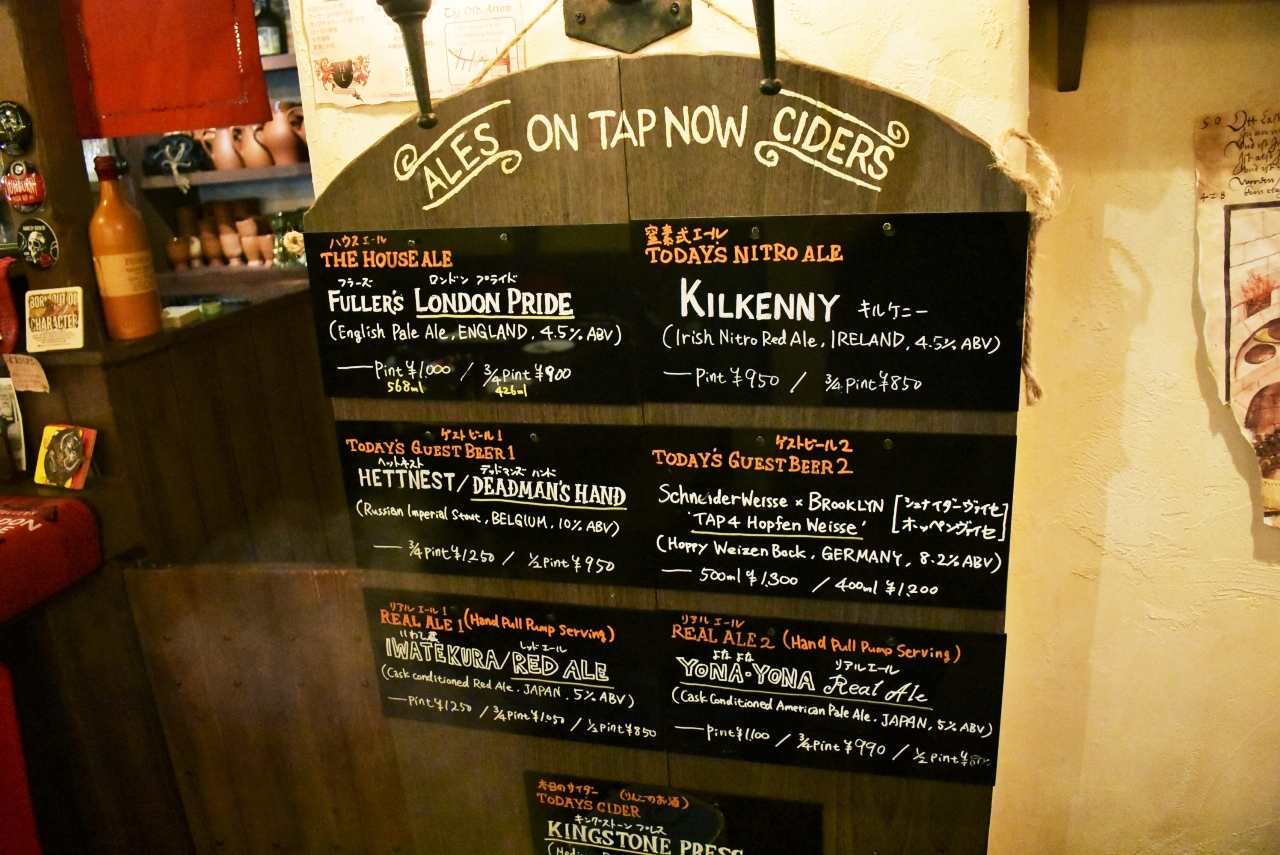 The Old Arrow
ALES ON TAP NOW CIDERS
ハウスエール
THE HOUSE ALE
フラーズ ロンドン プライド
FULLER'S LONDON PRIDE
(English Pale Ale, ENGLAND, 4.5% ABV)
Pint ¥1000 / 3/4 Pint ¥900
568ml 426ml
窒素式エール
TODAY'S NITRO ALE
KILKENNY キルケニー
(Irish Nitro Red Ale, IRELAND, 4.5% ABV)
Pint ¥950 / 3/4 Pint ¥850
ゲストビール1
TODAY'S GUEST BEER 1
デッドマンズ ハンド
HETTNEST/DEADMAN'S HAND
(Russian Imperial Stout, BELGIUM, 10% ABV)
3/4 Pint ¥1250 / 1/2 Pint ¥950
ゲストビール2
TODAY'S GUEST BEER 2
Schneider Weisse × BROOKLYN [シュナイダーヴァイセ
'TAP4 Hopfen Weisse' ホッペンヴァイセ]
(Hoppy Weizen Bock, GERMANY, 8.2% ABV)
500ml ¥1,300 / 400ml ¥1,200
リアル エール 1
REAL ALE 1 (Hand Pull Pump Serving)
いわて蔵 レッド エール
IWATEKURA/RED ALE
(Cask conditioned Red Ale, JAPAN, 5% ABV)
Pint ¥1250 / 3/4 Pint ¥1,050 / 1/2 Pint ¥850
リアル エール
REAL ALE 2 (Hand Pull Pump Serving)
よな よな リアル エール
YONA・YONA Real Ale
(Cask Conditioned American Pale Ale, JAPAN, 5% ABV)
Pint ¥1,100 / 3/4 Pint ¥990 / 1/2 Pint
本日のサイダー (りんごのお酒)
TODAY'S CIDER
キングストーン プレス
KINGSTONE PRESS
BORN OUT OF
CHARACTER